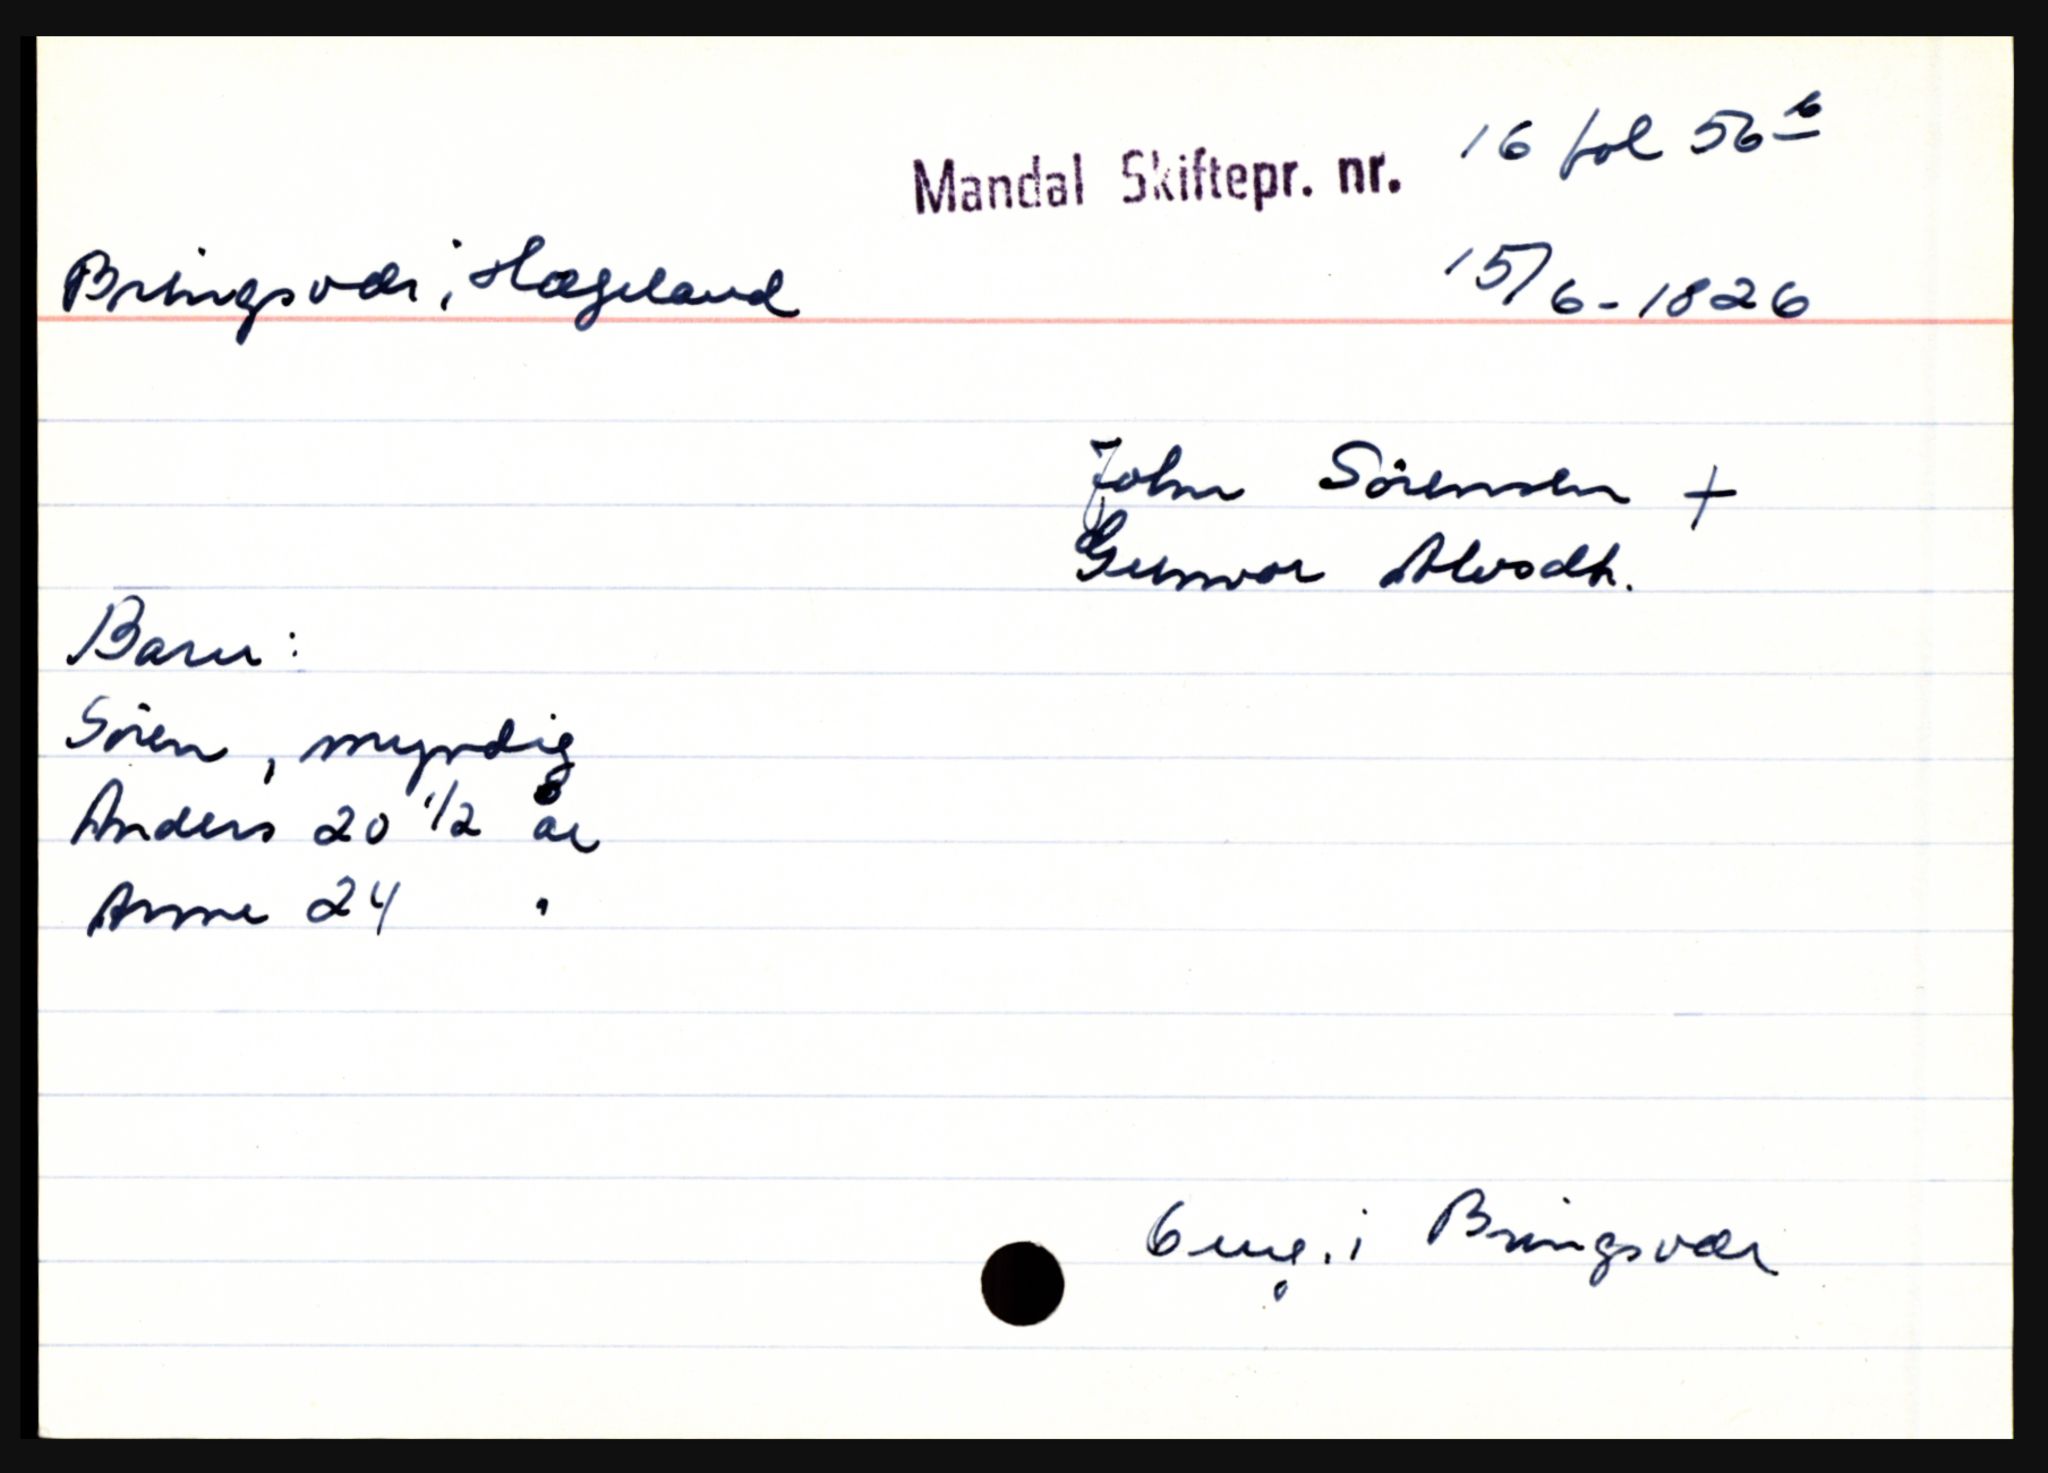 Mandal Skiftepr. nr. 16 fol 56 b
Bringsvær, Hægeland 15/6-1826
John Sörensen +
Gunvor Alvsdtr.
Barn:
Sören, myndig
Anders 20 1/2 år
Anne 24 "
6 eng. i Bringsvær